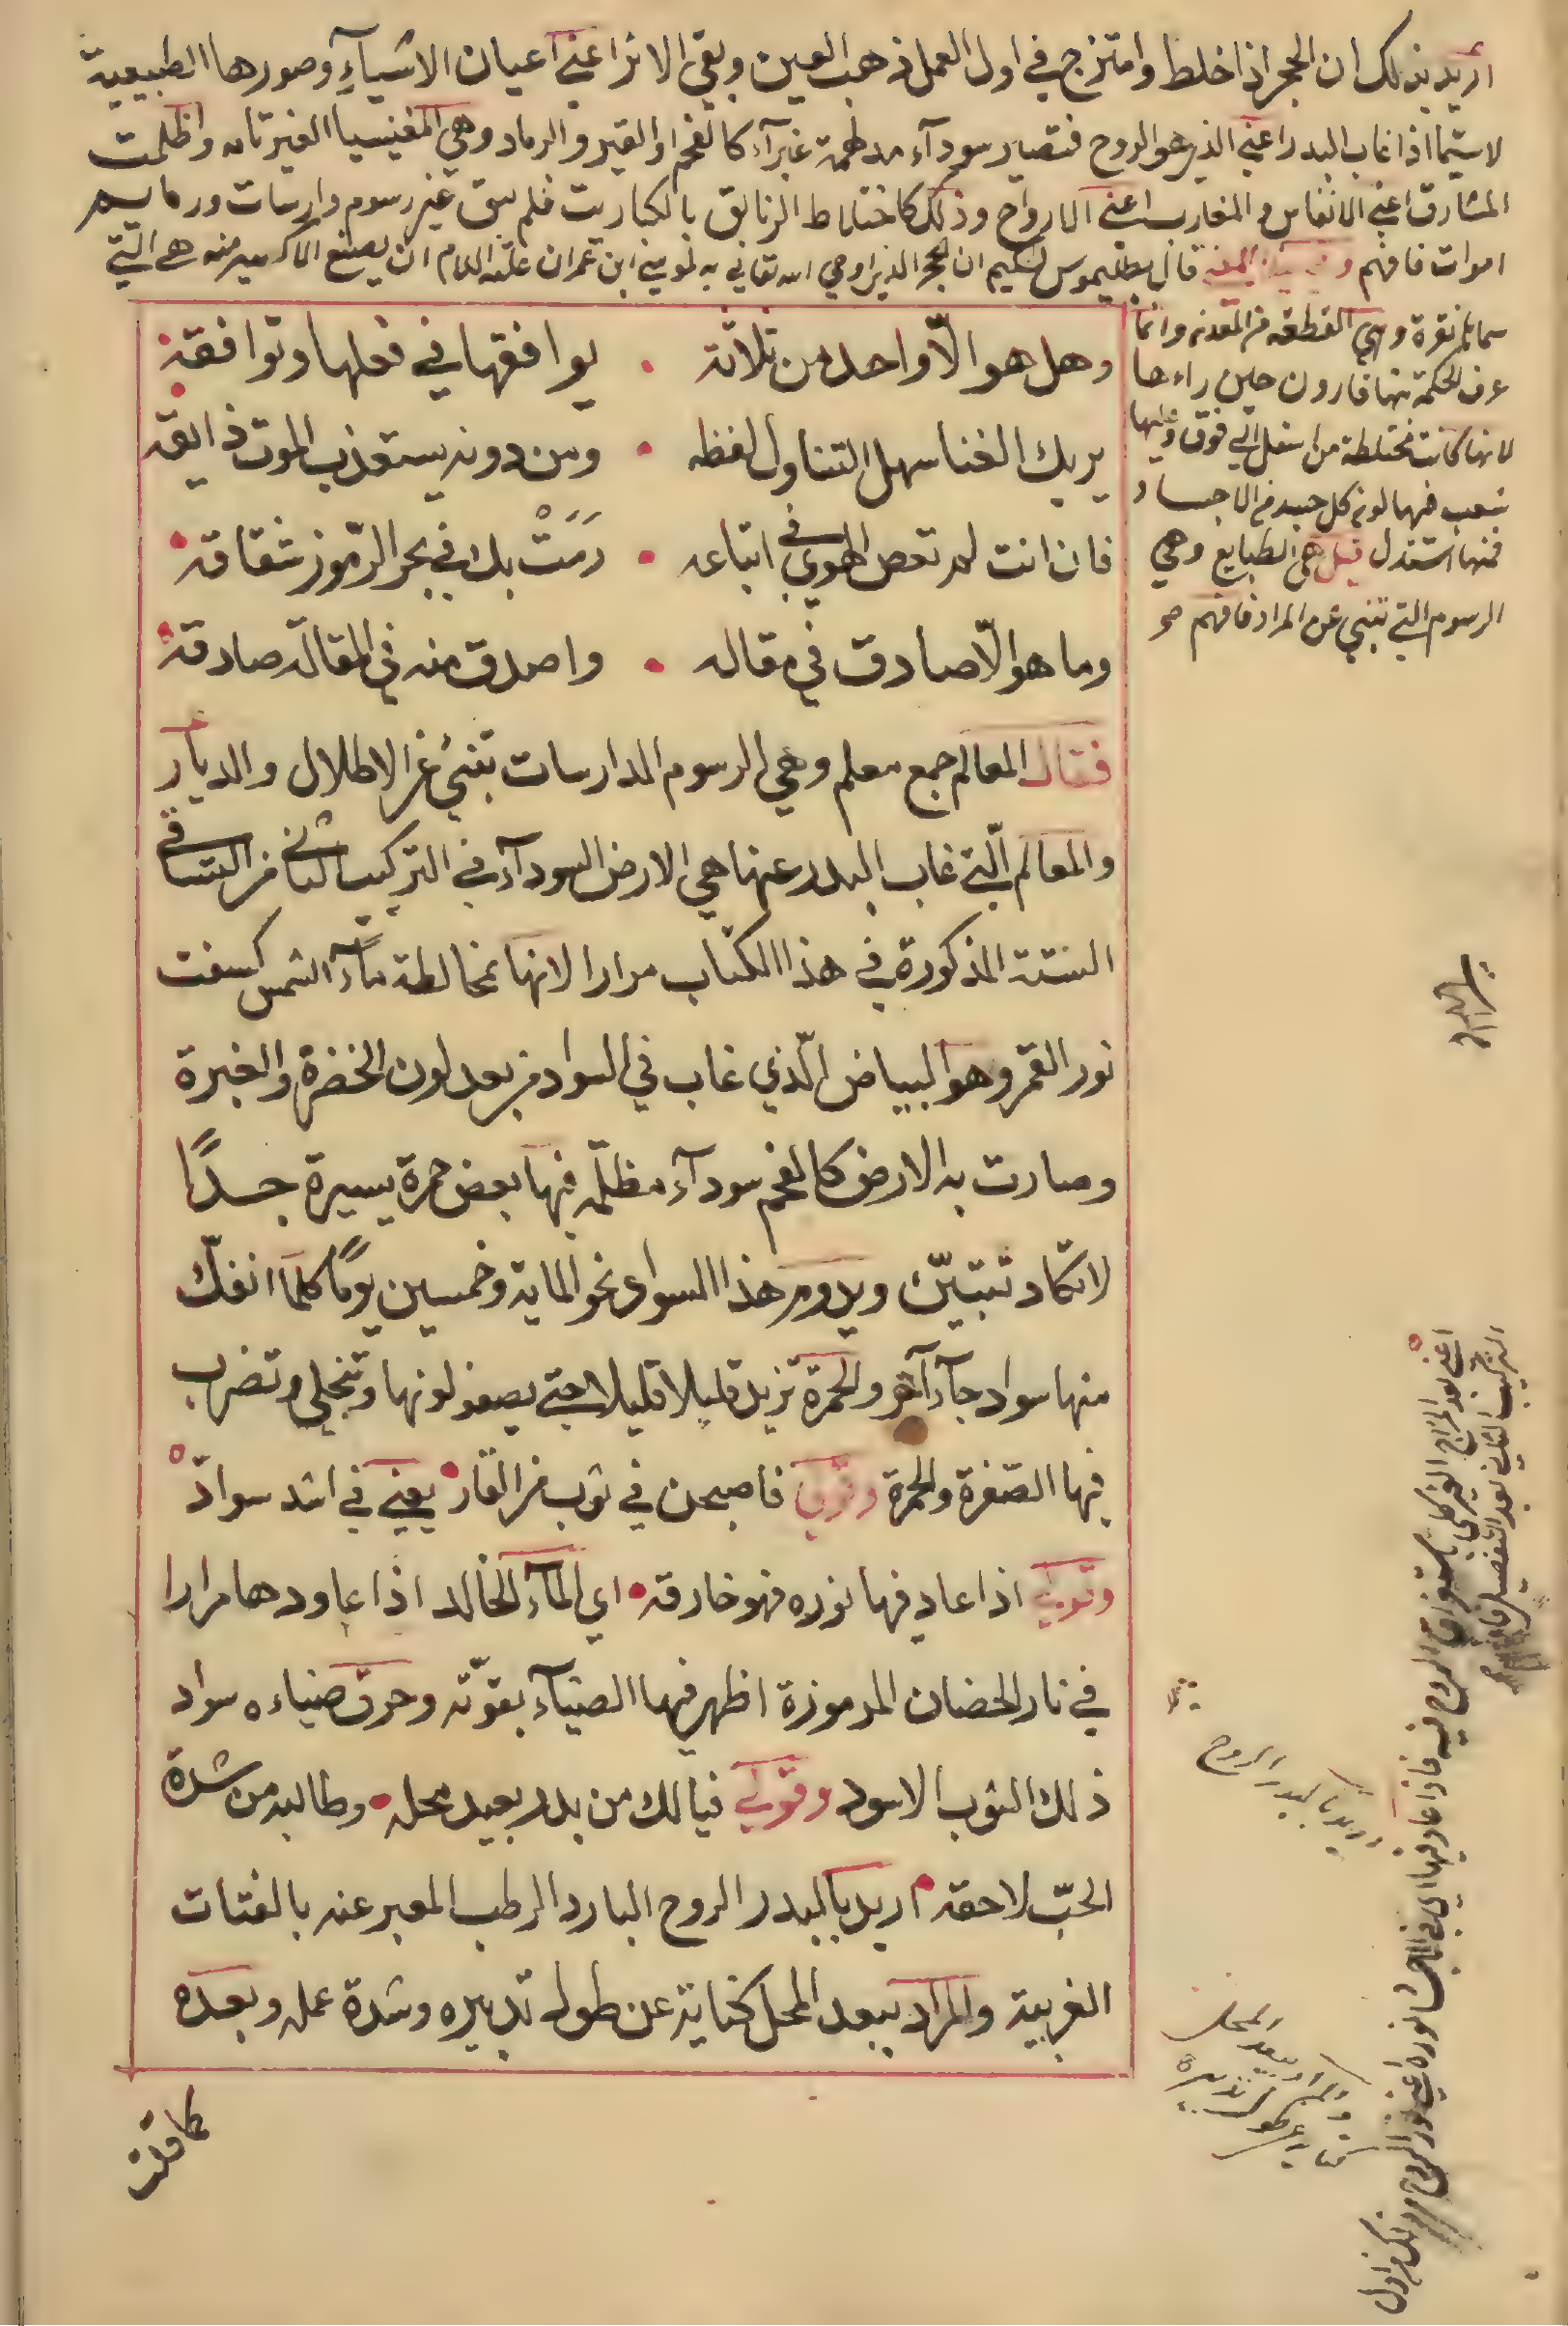 اريد بذلك ان الحجر اذا اختلط وامتزج في اول العمل ذهب العين وبقي الاثر اعني اعيان الاشيآء وصورها الطبيعية
لاسيما اذا غاب البدر اعني الذي هو الروح فتصير سودآء مدلهمة غبرآء كالفحم او القير والرماد وهي المغنيسيا الغير تامه واظلمت
المشارق اعني الانفاس والمغارب اعني الارواح وذلك كاختلاط الزئابق بالكباريت فلم يبق غير رسوم دارسات ورمايم
اموات فافهم قال بطليموس الحكيم ان الحجر الذي اوحي الله تعالي به لموسي ابن عمران عليه السلام ان يصنع الاكسير منه هي التي
سماها نقرة وهي القطعه من المعدنه وانما
عرف الحكمة منها قارون حين راءها
لانها كانت مختلطة من اسفل الي فوق
شعب فيها لونه كل جسد من الاجساد
فمنها استدل قيل هي الطبايع وهي
الرسوم التي تنبي عن المراد فافهم صح
وهل هو الّا واحد من ثلاثة • يوافقها في فعلها وتوافقه
يريك الغنا سهل التناول لفظه • ومن دونه يستعذب الموت ذايقه
فان انت لم تعص الهوي في اتباعه • رَمَتْ بك في بحر الرّموز شقاقه
وما هو الّا صادق في مقاله • واصدق منه في المقالة صادقه
فقال المعالم جمع معلم وهي الرسوم المدارسات تنبئ عن الاطلال والديار
والمعالم الّتي غاب البدر عنها هي الارض السودآء في التركيب الثاني من التساقي
الستة المذكورة في هذا الكتاب مرارا لانها بمخالطة مآء الشمس كسفت
نور القمر وهو البياض الّذي غاب في السواد من بعد لون الخضرة والغبرة
وصارت به الارض كالفحم سودآء مظلّمه فيها بعض حمرة يسيرة جدًا
لا تكاد تتبيّن ويدوم هذا السواد نحو الماية وخمسين يومًا كلما انفكّ
منها سواد جآء آخر والحمرة تزيد قليلا قليلا حتى يصفو لونها وتنجلي وتضرب
فيها الصّفرة والحمرة وقولي فاصبحن في ثوب من القار • يعني في اشد سوادّ
وقولي اذا عاد فيها نوره فهو خارقه • اي المآء الخالد اذا عاودها مرارا
في نار الحضان المرموزة اظهر فيها الضيآء بقوّته وحرق ضياءه سواد
ذلك الثوب الاسود وقولي فيالك من بدر بعيد محله • وطالبه من شدة
الحبّ لاحقه • اريد بالبدر الروح البارد الرطب المعبر عنه بالفتات
الغربية والمراد ببعد المحل كناية عن طول تدبيره وشدة عمله وبعده
كما قلت
اعني بعد المزاج الغير كلي باستغراق الروح فيه فاذا عاد فيها اي في الاجساد نوره اعني نور الروح وذلك في اول
التركيب الثاني بعد التفصيل فافهم
اريد بالبدر الروح
والمراد ببعد المحل
كناية عن طول تدبيره